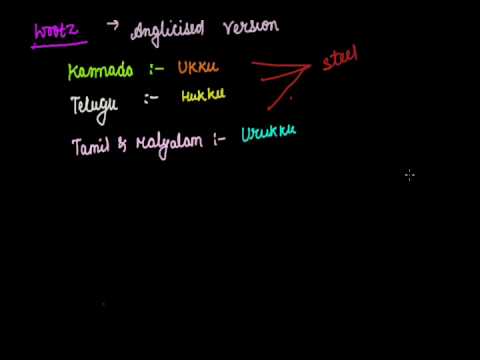 Wootz → Anglicised Version
Kannada :- Ukku
steel
Telugu :- Hukku
Tamil & Malyalam :- Urukku